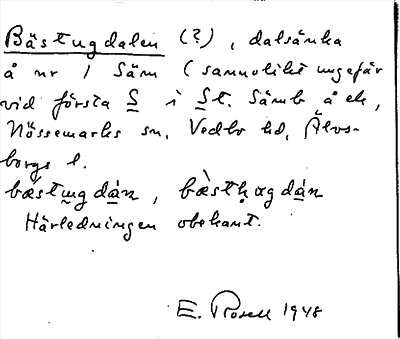 Bästugdalen (?), dalsänka
å nr 1 Säm (sannolikt ungefär
vid första S i St. Sämb å ek,
Nössemarks sn, Vedbo hd, Älvs-
borgs l.
bæ̀stu̯gdán, bæ̀stḥαgdán
Härledningen obekant.
E. Rosell 1948